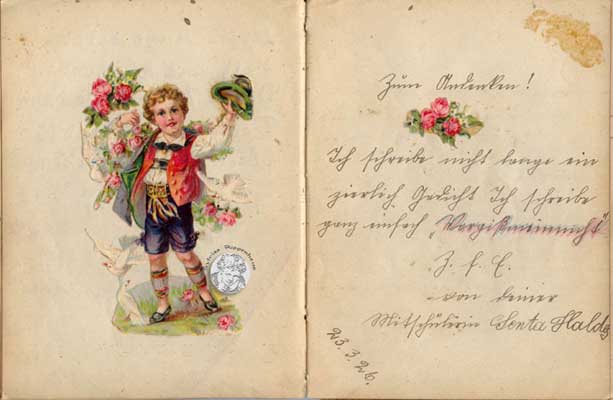 Zum Andenken!
Ich schreibe nicht lange ein
zierlich Gedicht Ich schreibe
ganz einfach „Vergißmeinnicht
Z. f. E.
von deiner
Mitschülerin Senta
23.3.26.